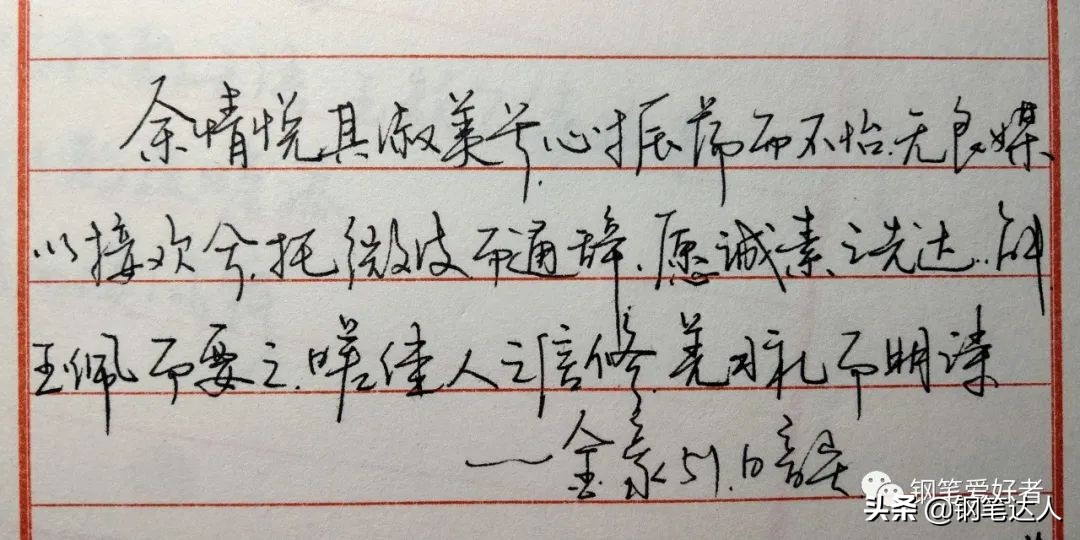 余情悦其淑美兮,心振荡而不怡.无良媒
以接欢兮,托微波而通辞.愿诚素之先达.解
玉佩而要之.嗟佳人之信修.羌习礼而明诗
——金豪51.
钢笔爱好者
头条 @钢笔达人